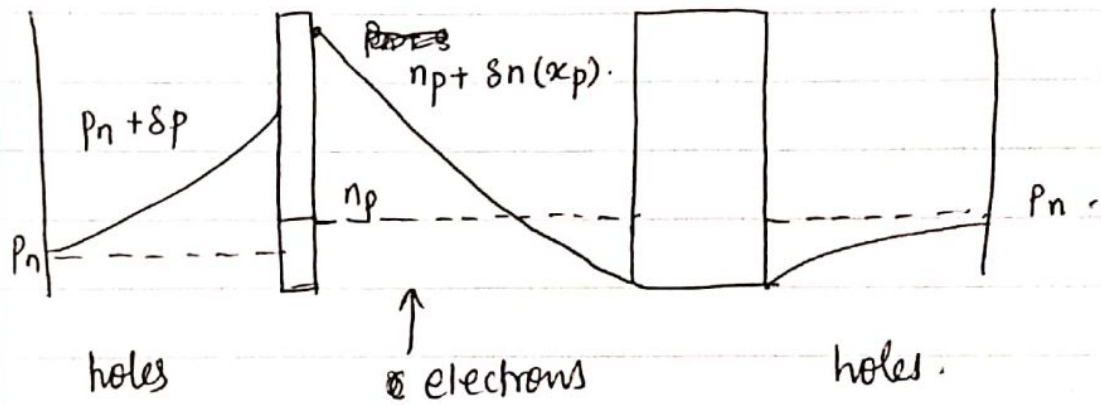 n_p + δn(x_p).
p_n + δp
n_p
p_n .
p_n
holes
electrons
holes.